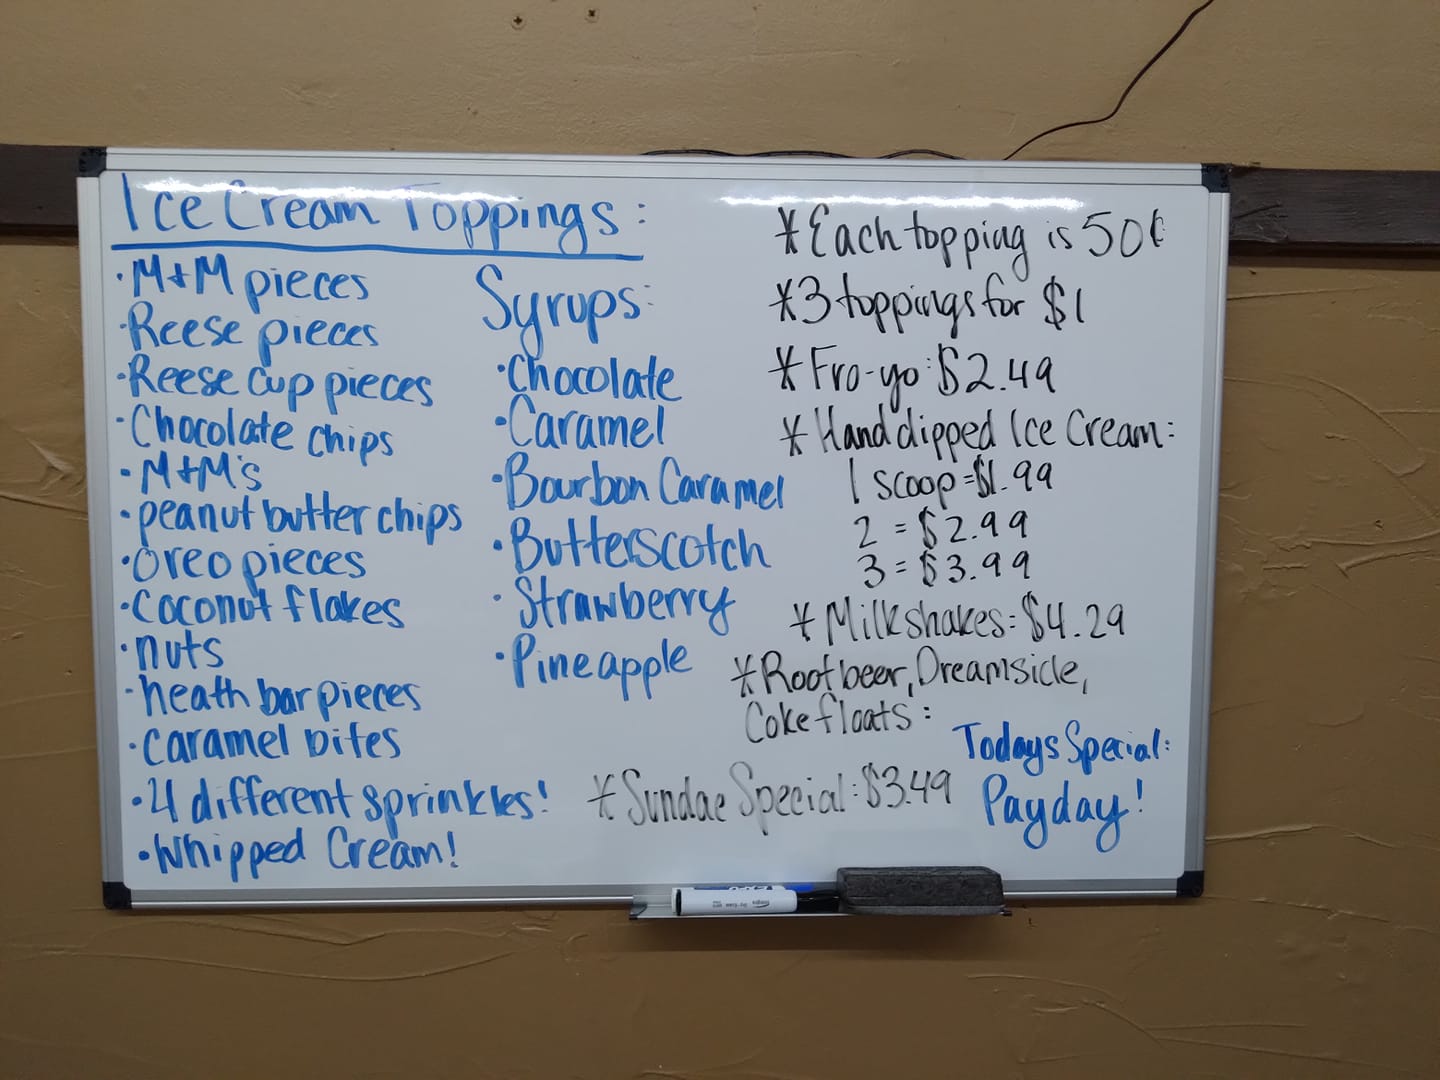 Ice Cream Toppings:
· M+M pieces
· Reese pieces
· Reese cup pieces
· Chocolate chips
· M+M's
· peanut butter chips
· oreo pieces
· coconut flakes
· nuts
· heath bar pieces
· caramel bites
· 4 different sprinkles!
· Whipped Cream!
Syrups:
· Chocolate
· Caramel
· Bourbon Caramel
· Butterscotch
· Strawberry
· Pineapple
* Each topping is 50¢
* 3 toppings for $1
* Fro-yo: $2.49
* Hand dipped Ice Cream:
1 scoop = $1.99
2 = $2.99
3 = $3.99
* Milkshakes: $4.29
* Rootbeer, Dreamsicle,
Coke floats:
* Sundae Special: $3.49
Todays Special:
Payday!